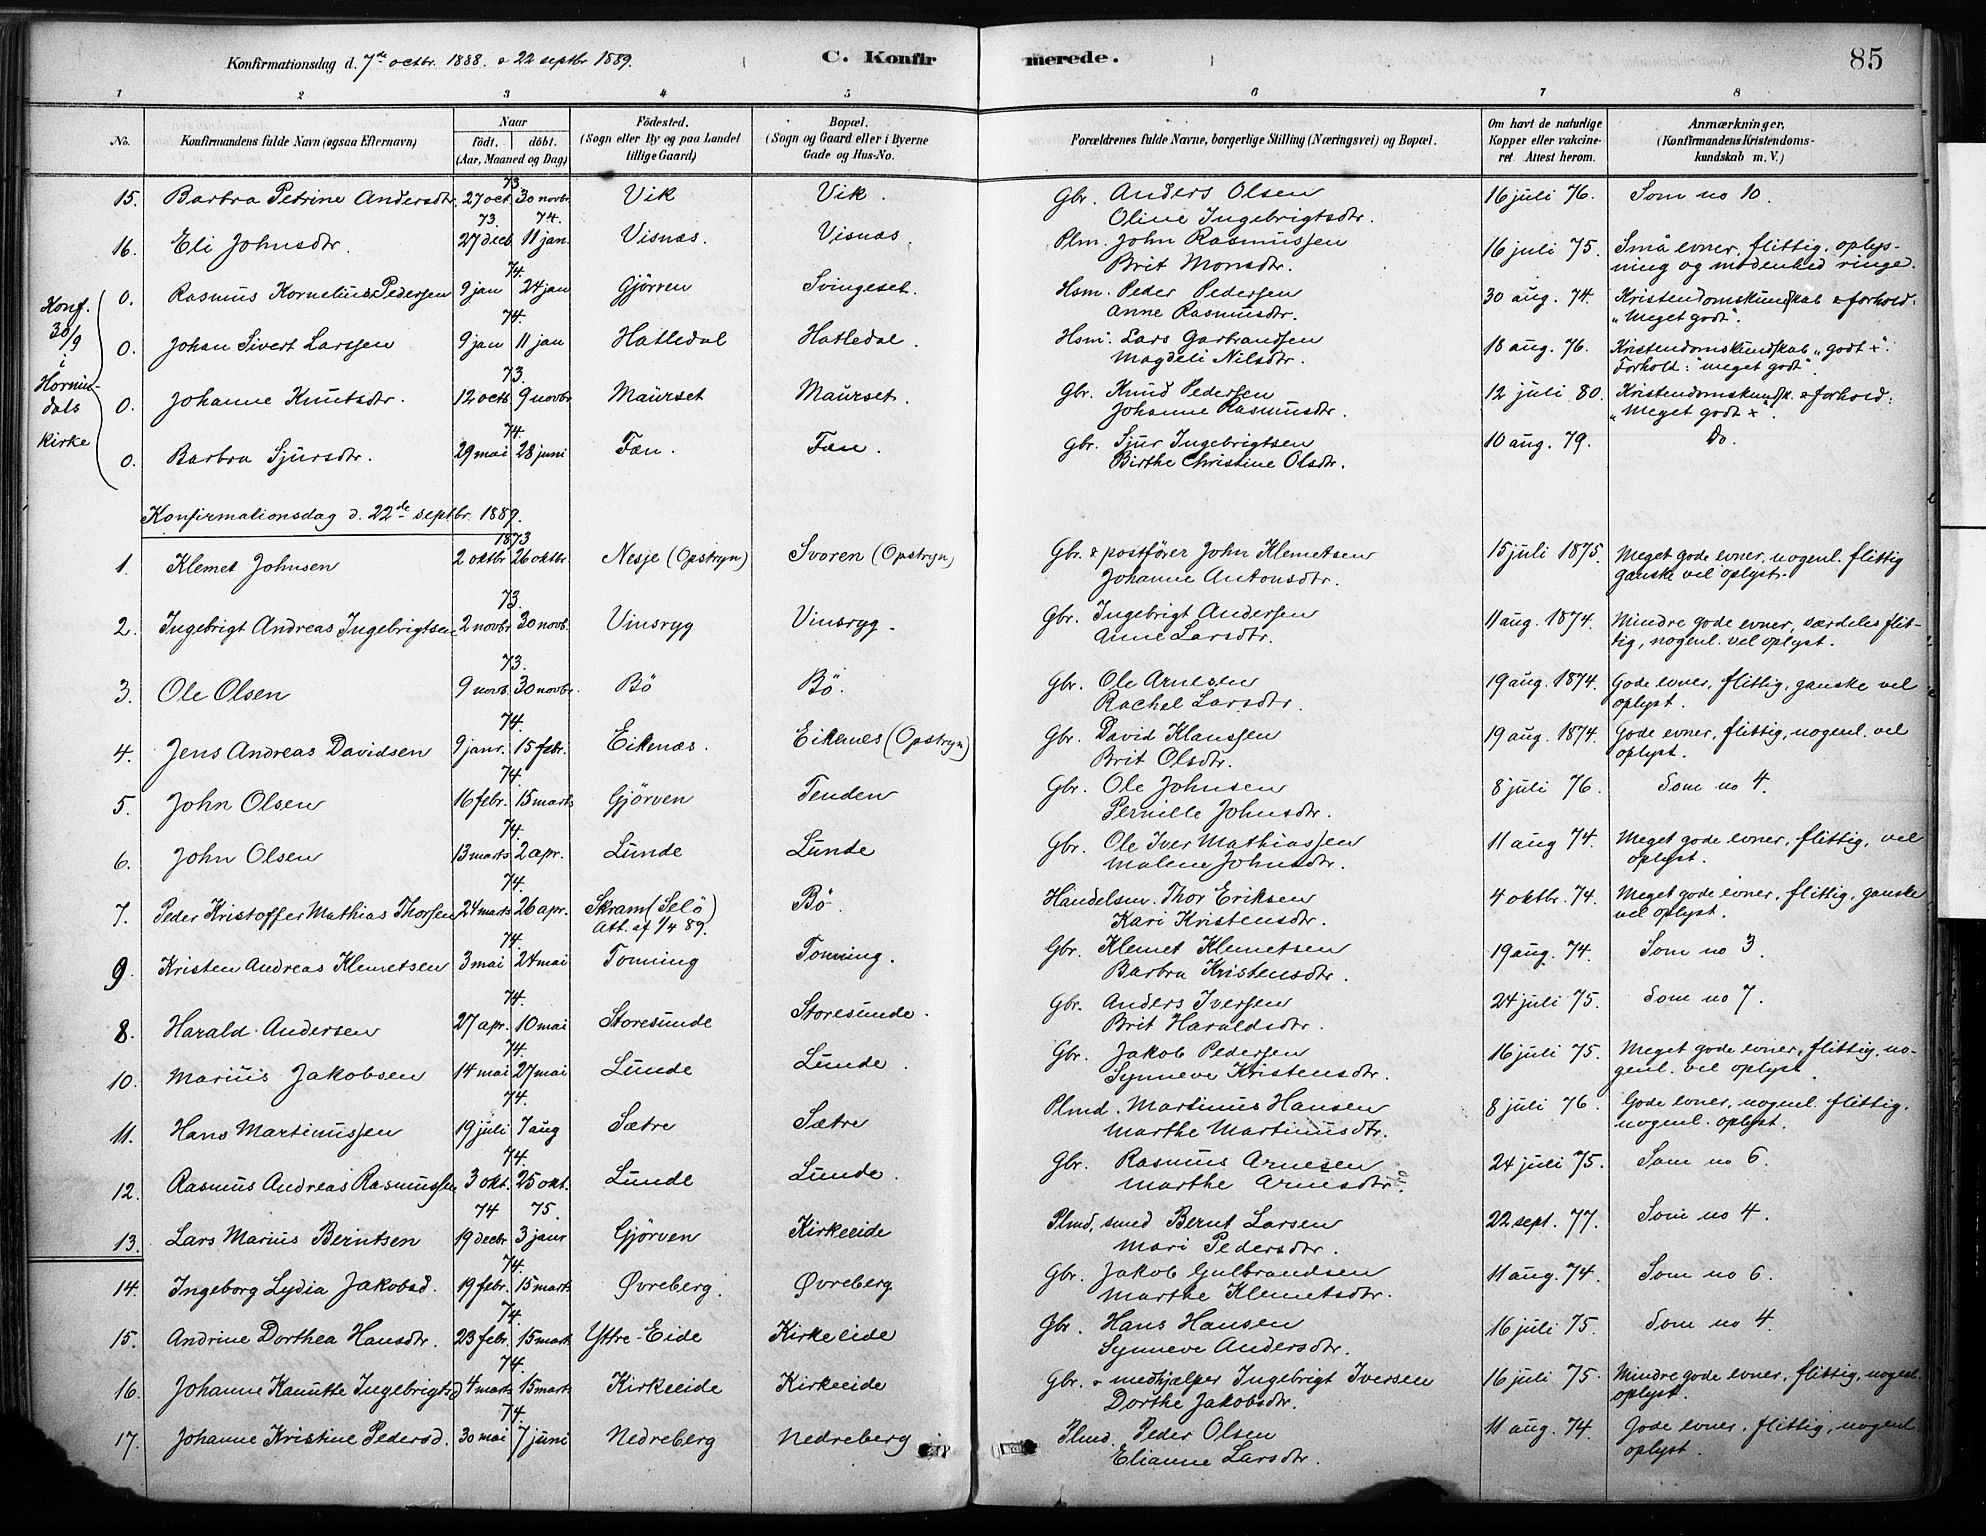 Konfirmationsdag d. 7de octbr. 1888. & 22 septbr 1889. C. Konfirmerede. 85
1 2 3 4 5 6 7 8
No. Konfirmandens fulde Navn (ogsaa Efternavn) Naar født. døbt. (Aar, Maaned og Dag) Fødested. (Sogn eller By og paa Landet tillige Gaard) Bopæl. (Sogn og Gaard eller i Byerne Gade og Hus-No. Forældrenes fulde Navne, borgerlige Stilling (Næringsvei) og Bopæl. Om havt de naturlige Kopper eller vakcineret. Attest herom. Anmærkninger. (Konfirmandens Kristendomskundskab m. V.)
73
15. Barbra Petrine Andersdtr. 27 oct. 30 novbr. Vik Vik. Gbr. Anders Olsen 16 juli 76. Som no 10.
Oline Ingebrigtsdtr.
73. 74.
16. Eli Johnsdtr. 27 dect 11 jan. Visnæs. Visnæs. Plm. John Rasmussen 16 juli 75. Små evner, flittig, oplys-
Brit Monsdtr. ning og modenhed ringe.
74.
Konf. 30/9 i Hornindals kirke
0. Rasmus Kornelius Pedersen 9 jan 24 jan Gjörven Svingeset. Hsm. Peder Pedersen 30 aug. 74. Kristendomskundskab & forhold.
Anne Rasmusdtr. "Meget godt".
74.
0. Johan Sivert Larssen 9 jan 11 jan Hatledal Hatledal. Hsm. Lars Garbrandsen 18 aug. 76. Kristendomskundskab "godt +".
Magdeli Nilsdtr. Forhold: "meget godt".
73.
0. Johanne Knutsdtr. 12 octb 9 novbr Maurset Maurset. Gbr. Knud Pedersen 12 juli 80. Kristendomskundsk. & forhold:
Johanne Rasmusdtr. "Meget godt +".
74.
0. Barbra Sjursdtr. 29 mai 28 juni Fæn. Fæn. Gbr. Sjur Ingebrigtsen 10 aug. 79. Do.
Birthe Christine Olsdtr.
Konfirmationsdag d. 22de septbr. 1889.
1873
1. Klemet Johnsen 2 oktbr 26 oktbr. Nesje (Opstryn) Svoren (Opstryn) Gbr. & postfører John Klemetsen 15 juli 1875. Meget gode evner, nogenl. flittig
Johanne Antonsdtr. ganske vel oplyst.
73.
2. Ingebrigt Andreas Ingebrigtsen 2 novbr 30 novb. Vinsryg Vinsryg. Gbr. Ingebrigt Andersen 11 aug. 1874. Mindre gode evner, særdeles flit-
Anne Larsdtr. tig, nogenl. vel oplyst.
73.
3. Ole Olsen 9 novb. 30 novbr. Bö Bö. Gbr. Ole Arnesen 19 aug. 1874. Gode evner, flittig, ganske vel
Rachel Larsdtr. oplyst.
74.
4. Jens Andreas Davidsen 9 janr. 15 febr. Eikenæs. Eikenes (Opstryn) Gbr. David Klaussen 19 aug. 1874. Gode evner, flittig, nogenl. vel
Brit Olsdtr. oplyst.
74.
5. John Olsen 16 febr. 15 marts Gjörven Tenden Gbr. Ole Johnsen 8 juli 76. Som no 4.
Pernille Johnsdtr.
74.
6. John Olsen 13 marts 2 apr. Lunde Lunde Gbr. Ole Iver Mathiassen 11 aug 74. Meget gode evner, flittig, vel
Malene Johnsdtr. oplyst.
74.
7. Peder Kristoffer Mathias Thorsen 24 marts 26 apr. Skram (Selö) Bö. Handelsm. Thor Eriksen 4 oktbr. 74. Meget gode evner, flittig, ganske
Att. af 1/4 89. Kari Kristensdtr. vel oplyst.
74.
9. Kristen Andreas Klemetsen 3 mai 24 mai Tonning Tonning. Gbr. Klemet Klemetsen 19 aug. 74. Som no 3.
Barbra Kristensdtr.
74.
8. Harald Andersen 27 apr. 10 mai Storesunde Storesunde. Gbr. Anders Iversen 24 juli 75. Som no 7.
Brit Haraldsdtr.
74.
10. Marius Jakobsen 14 mai 27 mai Lunde Lunde. Gbr. Jakob Pedersen 16 juli 75. Meget gode evner, flittig, no-
Synneve Kristensdtr. genl. vel oplyst.
74.
11. Hans Martinussen 19 juli 7 aug Sætre Sætre Plmd. Martinus Hansen 8 juli 76. Gode evner, nogenl. flittig.
Marthe Martinusdtr. nogenl. oplyst.
74.
12. Rasmus Andreas Rasmussen 3 okt. 25 okt. Lunde Lunde. Gbr. Rasmus Arnesen 24 juli 75. Som no 6.
Marthe Arnesdtr.
74 75.
13. Lars Marius Berntsen 19 decbr 3 janr Gjörven Kirkeeide Plmd. smed Bernt Larsen 22 sept. 77. Som no 4.
Mari Pedersdtr.
74.
14. Ingeborg Lydia Jakobsd. 19 febr. 15 marts Øvreberg. Øvreberg Gbr. Jakob Gulbrandsen 11 aug. 74. Som no 6.
Marthe Klemetsdtr.
74.
15. Andrine Dorthea Hansdtr. 23 febr. 15 marts Yttre-Eide Kirkeeide Gbr. Hans Hansen 16 juli 75. Som no 4.
Synneve Andersdtr.
74.
16. Johanne Kanutte Ingebrigtsd 4 marts 15 marts Kirkeeide Kirkeeide Gbr. & medhjælper Ingebrigt Iversen 16 juli 75. Mindre gode evner, flittig, nogenl.
Dorthe Jakobsdtr. oplyst.
74.
17. Johanne Kristine Pedersd. 30 mai 7 juni Nedreberg Nedreberg Plmd. Peder Olsen 11 aug. 74. Gode evner, flittig, nogenl
Elianne Larsdtr. oplyst.